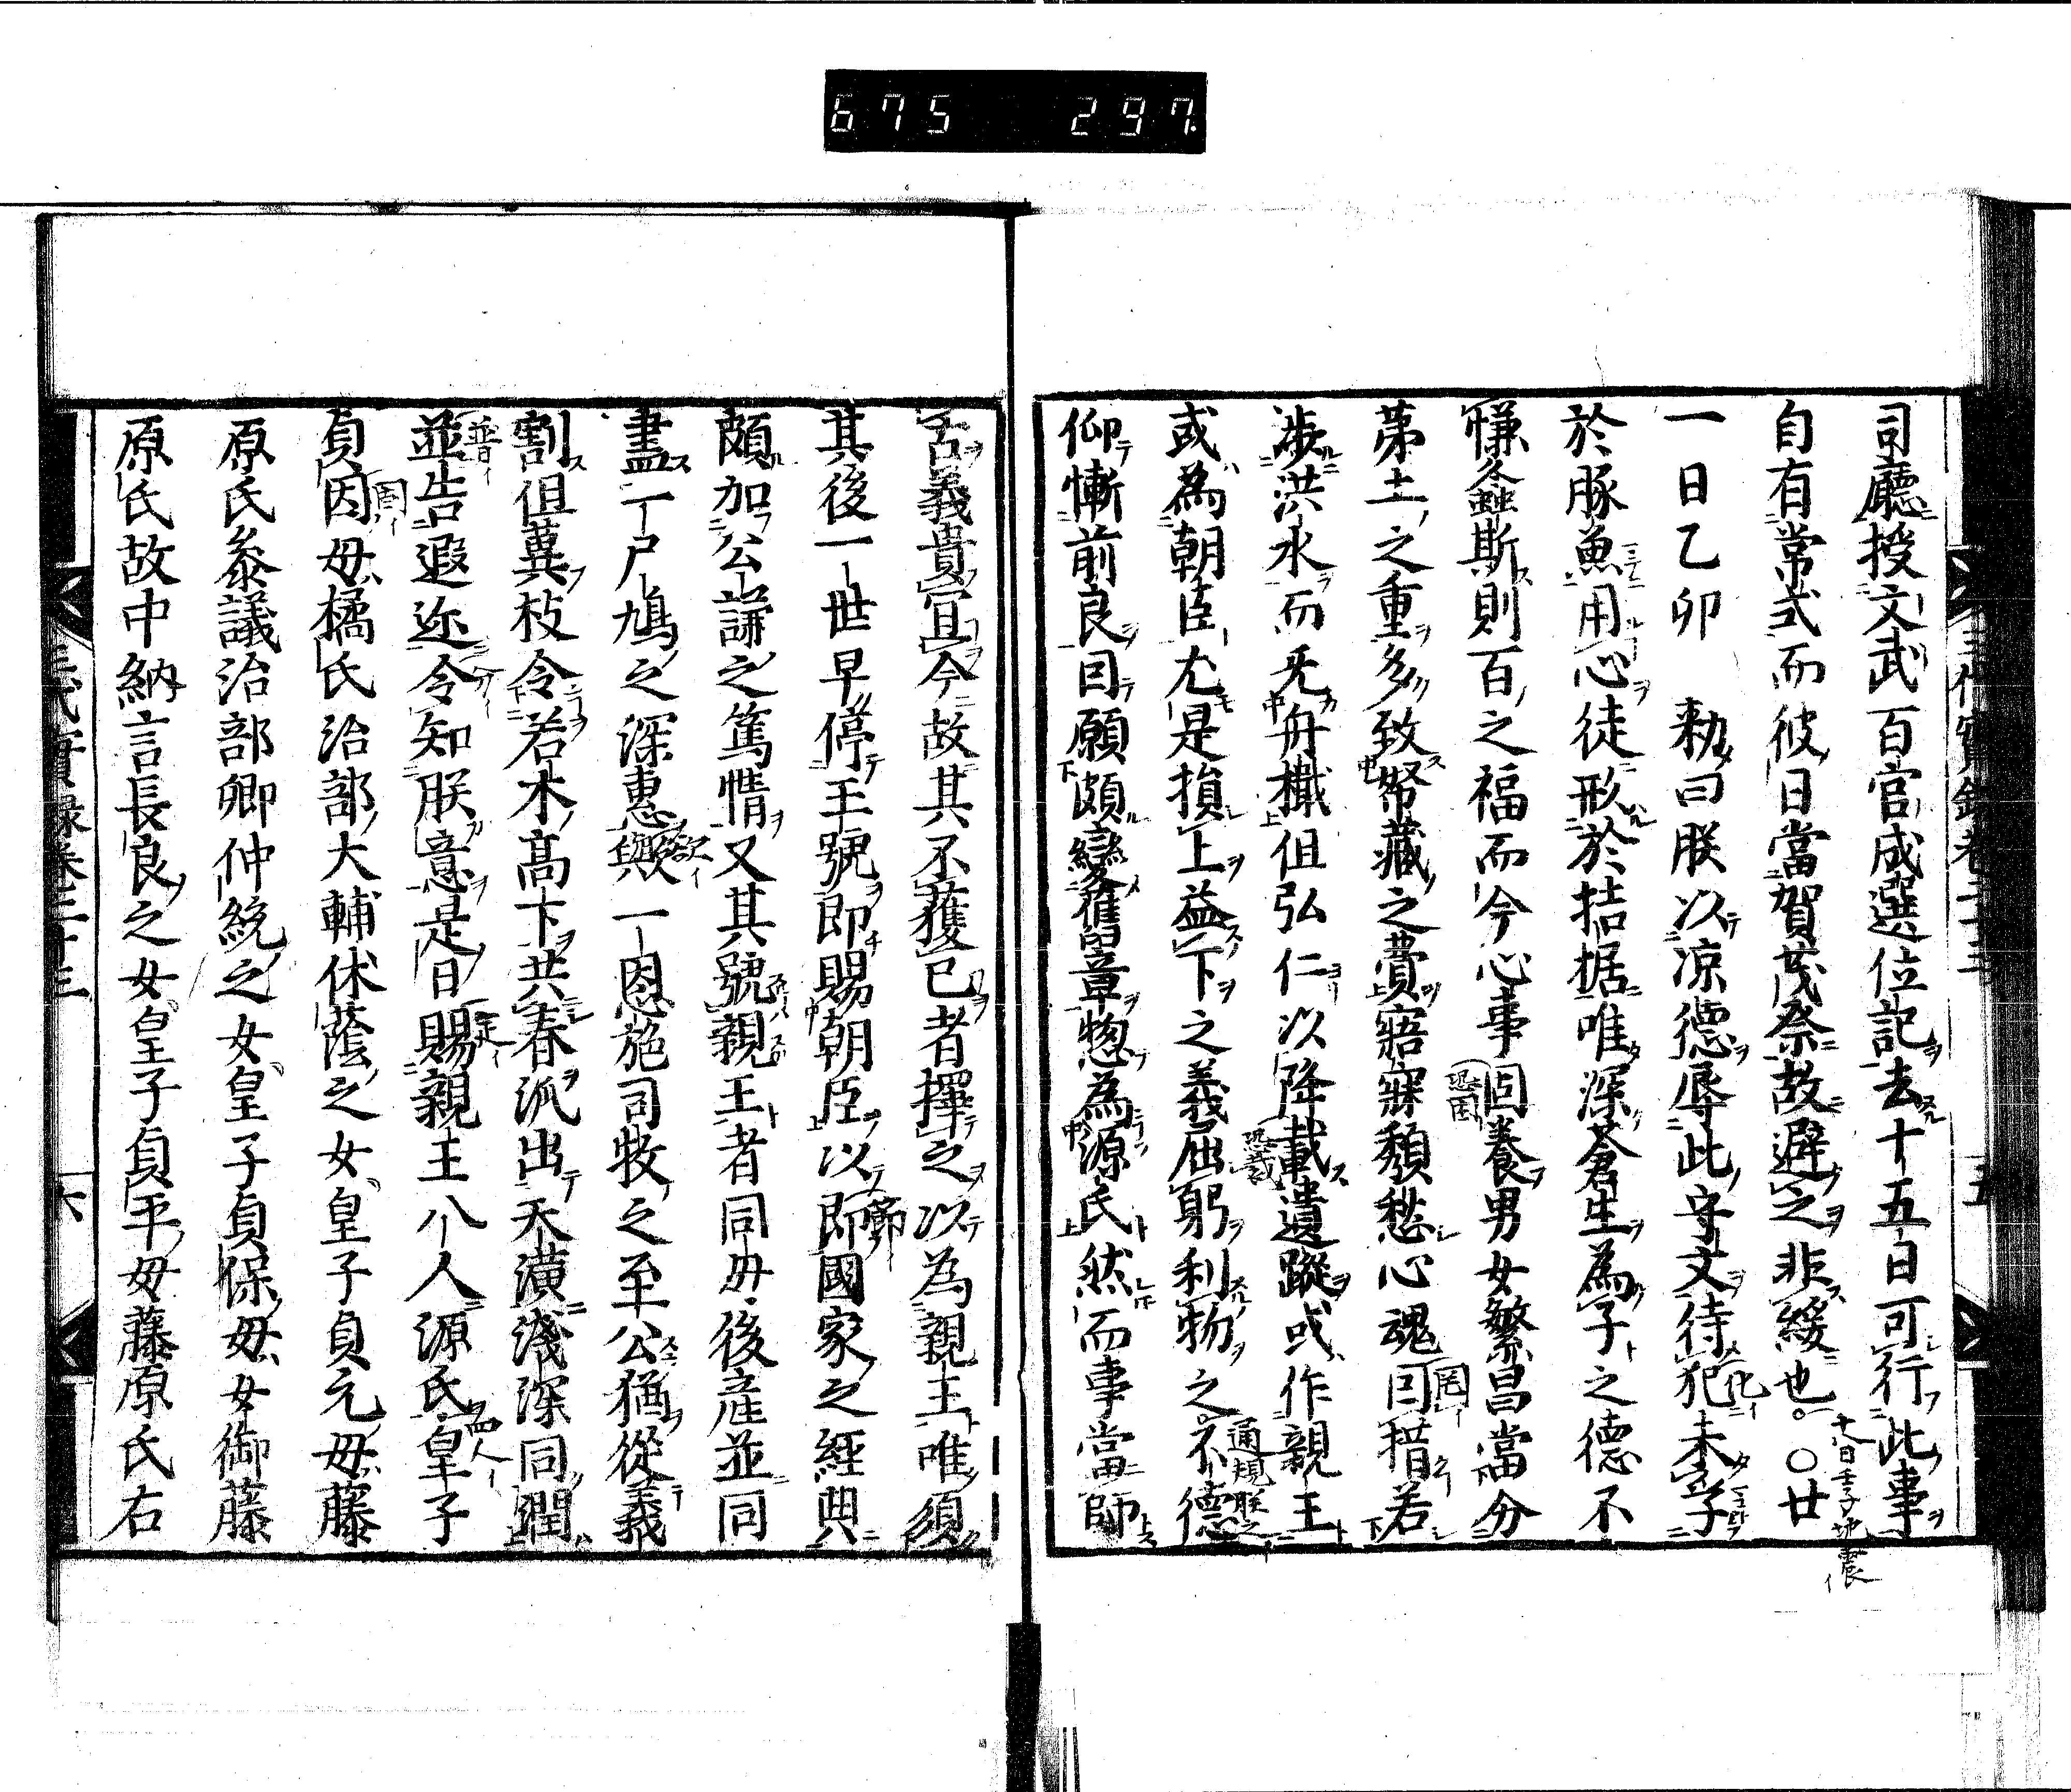 675 297
三代實録卷二十三 五
司廳授文武百官成選位記去十五日可行此事
自有常式而彼日當賀茂祭故避之非緩也○廿
十八日壬子地震イ
一日乙卯 勅曰朕以凉德辱此守文待犯未孚
於豚魚用心徒形於拮据唯深蒼生爲子之德不
慊螽斯則百之福而今心事固養男女繁昌當分
茅土之重多致帑藏之費寤寐頽愁心魂囙措若
渉洪水而无舟檝但弘仁以降載遺蹤或作親王
或爲朝臣尤是損上益下之義屈躬利物之不德
仰慚前良囙願頗變舊章惣爲源氏然而事當師
古義貴宜今故其不獲已者擇之以爲親王唯須
其後一世早停王號即賜朝臣以即國家之經典
頗加公謙之篤情又其號親王者同毋後産並同
盡一尸鳩之深惠歟一恩施司牧之至公猶從義
割但冀枝令若木高下共春泒出天潢淺深同潤
並告遐迩令知朕意是日賜親王八人源氏皇子
貞因毋橘氏治部大輔休蔭之女皇子貞元毋藤
原氏叅議治部卿仲統之女皇子貞保毋女御藤
原氏故中納言長良之女皇子貞平毋藤原氏右
三代實録卷二十三 六